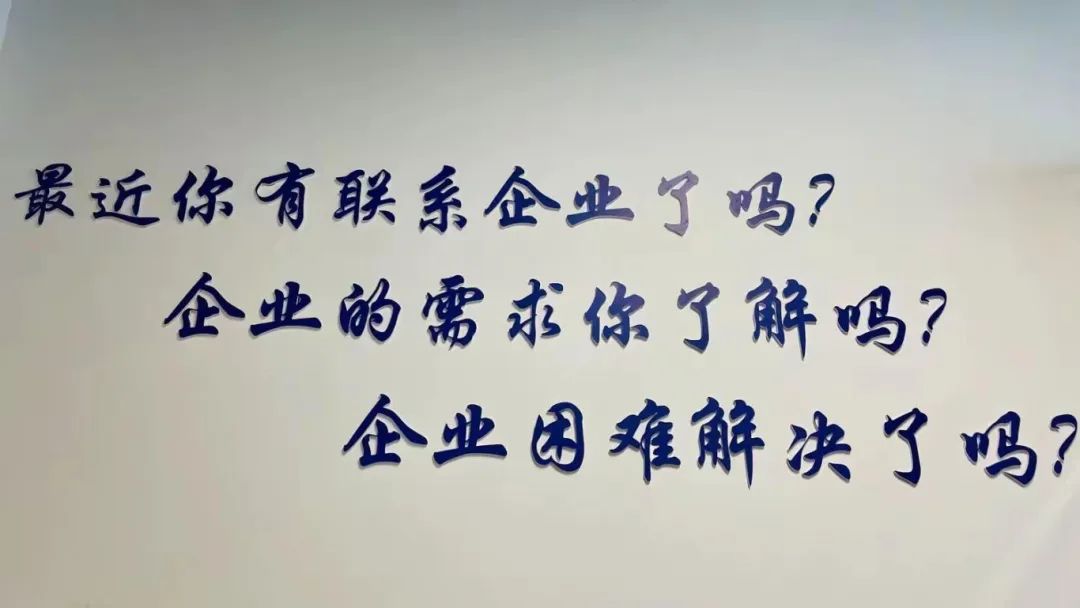 最近你有联系企业了吗？
企业的需求你了解吗？
企业困难解决了吗？